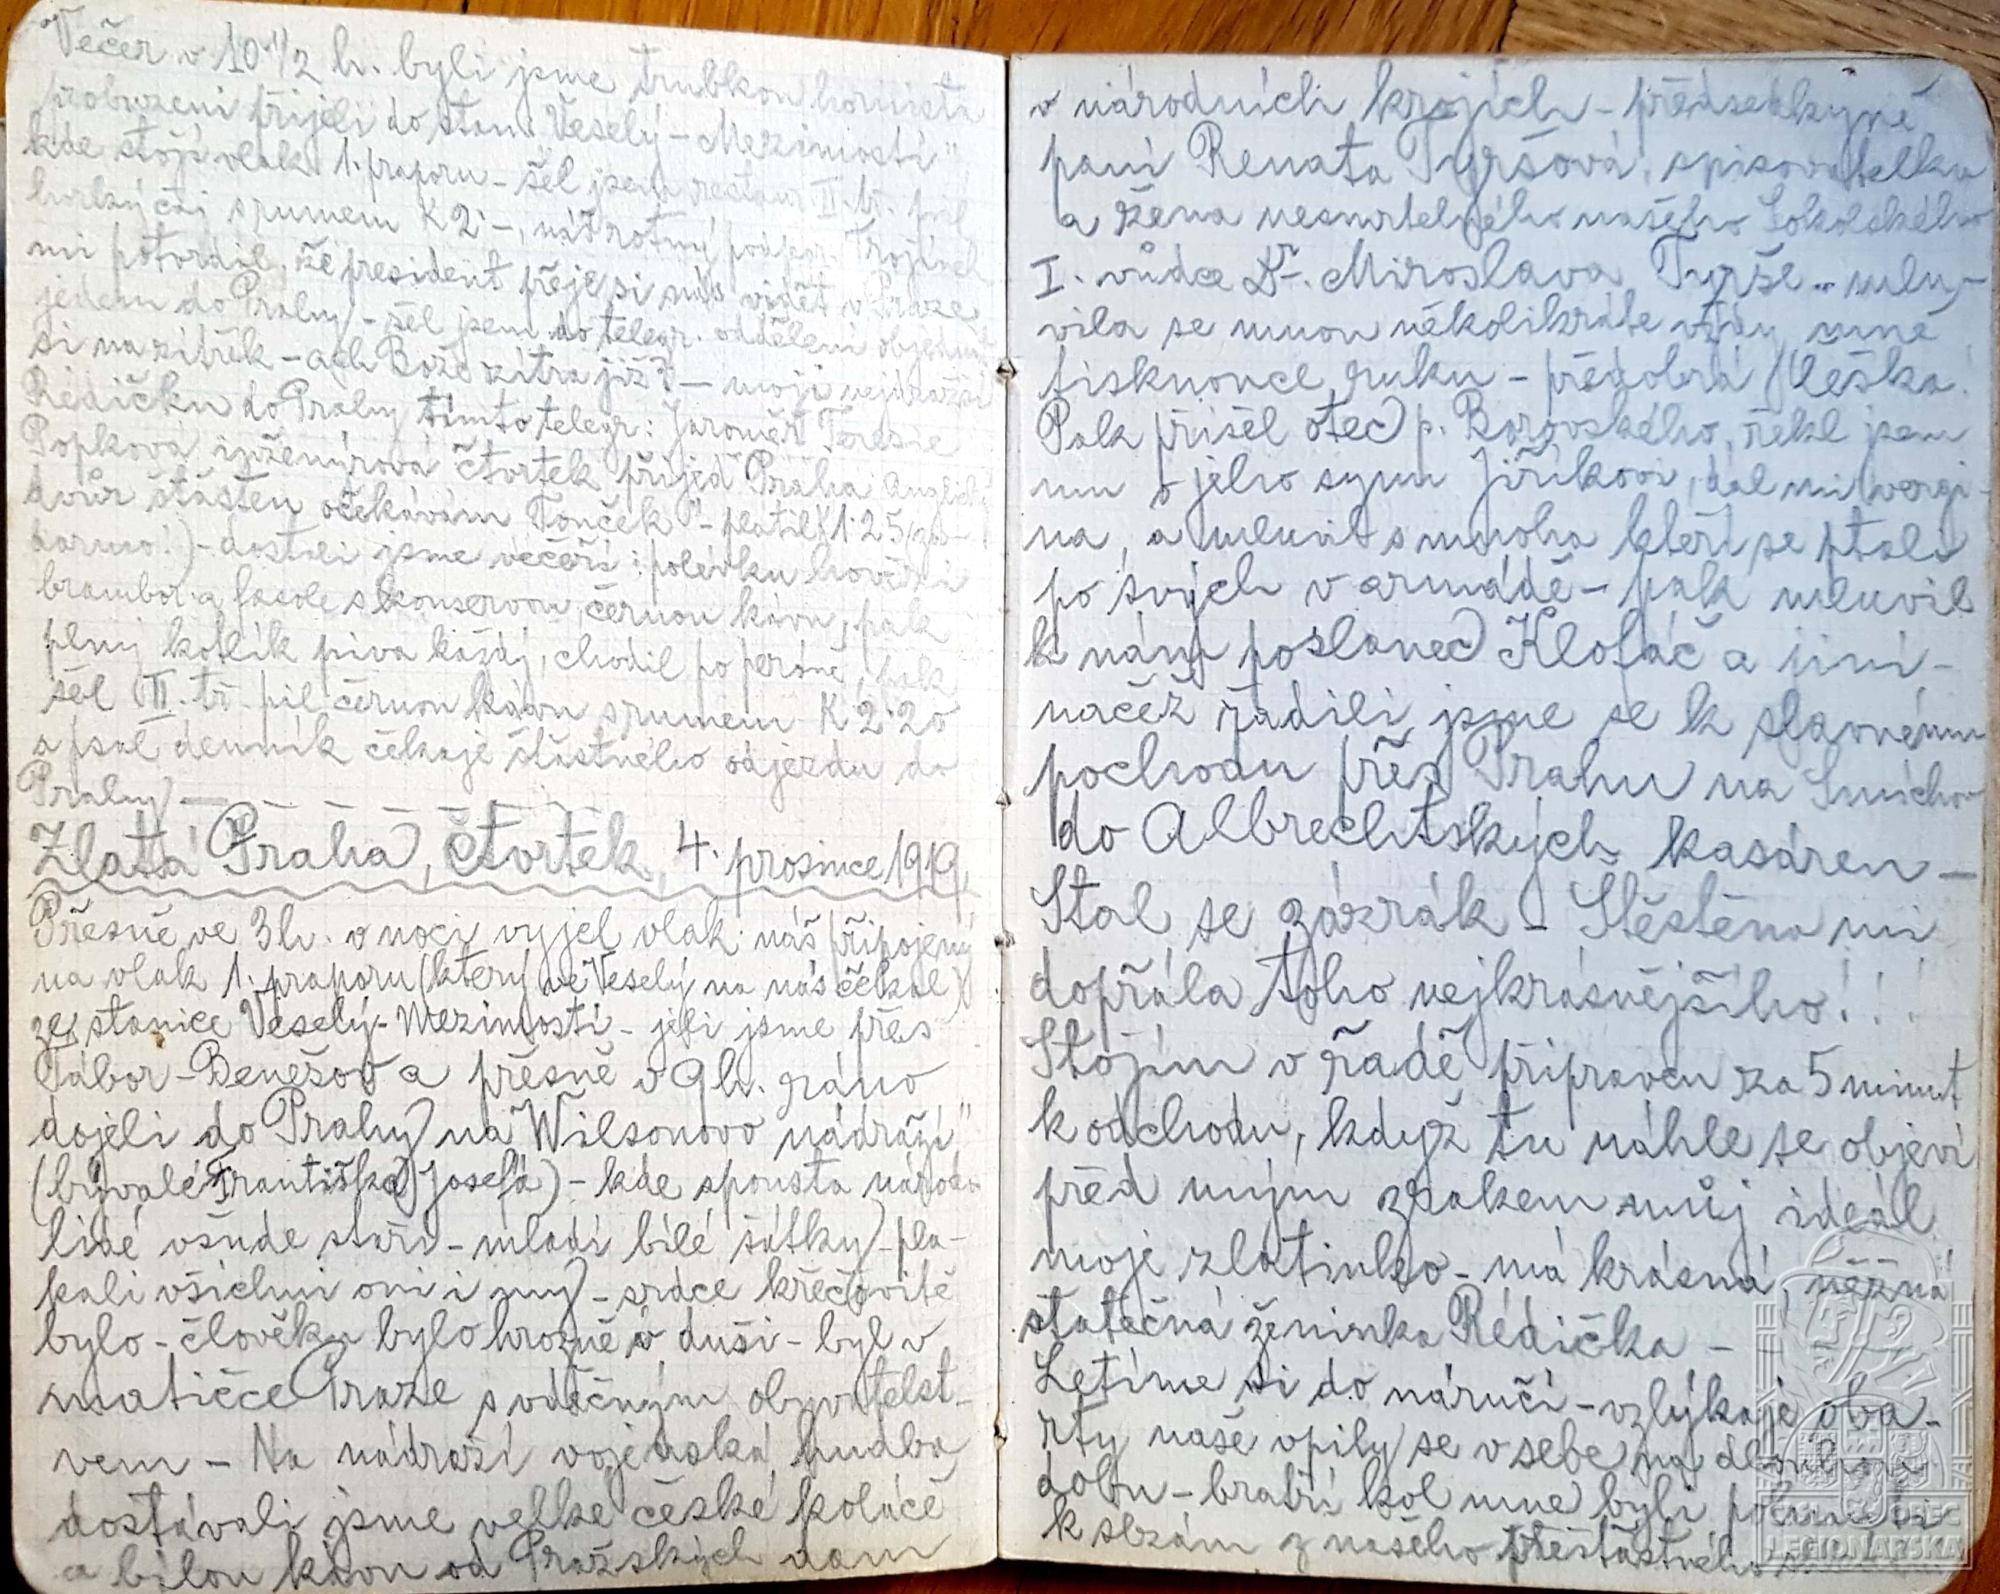 Večer v 10 1/2 h. byli jsme trubkou hornista
probuzeni přijeli do stan. Veselý-Mezimostí"
kde stojí vlak 1. praporu - šel jsem restaur II. tř. pil
horký čaj s rumem K 2·-, náš rotmý podpor. Trojánek
mi potvrdil, že president přeje si nás vidět v Praze
jedem do Prahy - šel jsem do telegr. oddělení objednat
si na zítřek - ach Bože zítra již? - moji nejdražší
Rédičku do Prahy tímto telegr: Jaroměř Teresie
Popková inženýrová čtvrtek přijeď Praha Anglický
dvůr šťasten očekávám Tonček" - platil (1·25 za-
darmo!) - dostali jsme večeři: polévku hovězí
brambor. a fasole s konservou, černou kávu, pak
plný kotlík piva každý, chodil po peroně, pak
šel III. tř. pil černou kávu s rumem K 2·20
a psal denník čekaje šťastného odjezdu do
Prahy) —
Zlatá Praha, čtvrtek, 4. prosince 1919.
Přesně ve 3h. v noci vyjel vlak náš připojený
na vlak 1. praporu (který ve Veselý na nás čekal)
ze stanice Veselý-Mezimostí - jeli jsme přes
Tábor-Benešov a přesně v 9h. ráno
dojeli do Prahy na "Wilsonovo nádraží"
(bývalé Františka Josefa) - kde spousta národa
lidé všude staří - mladí bílé šátky - pla-
kali všichni oni i my - srdce křečovitě
bylo - člověku bylo hrozně v duši - byl v
matičce Praze s vděčným obyvatelst-
vem - Na nádraží vojenská hudba
dostávali jsme velké české koláče
a bílou kávu od Pražských dam
v národních krojích - předsedkyně
paní Renata Tyršová, spisovatelka
a žena nesmrtelného našeho Sokolského
I. vůdce Dr. Miroslava Tyrše - mlu-
vila se mnou několikráte vždy mně
tisknouce ruku - předobrá Češka!
Pak přišel otec p. Borovského, řekl jsem
mu o jeho synu Jiříkovi, dal mi virgi-
na, a mluvil s mnoha kteří se ptali
po svých v armádě - pak mluvil
k nám poslanec Klofáč a jiní -
načež řadili jsme se k slavnému
pochodu přes Prahu na Smíchov
do Albrechtských kasáren -
Stal se zázrak - Štěstěna mi
dopřála toho nejkrásnějšího!!!
Stojím v řadě připraven za 5 minut
k odchodu, když tu náhle se objeví
před mým zrakem můj ideál
moje zlatinko - má krásná, něžná
statečná ženinka Rédička -
Letíme si do náručí - vzlykaje oba -
rty naše vpily se v sebe na dlouhou
dobu - bratří kol mne byli pohnuti
k slzám z našeho přešťastného
ČESKÁ OBEC
LEGIONÁŘSKÁ